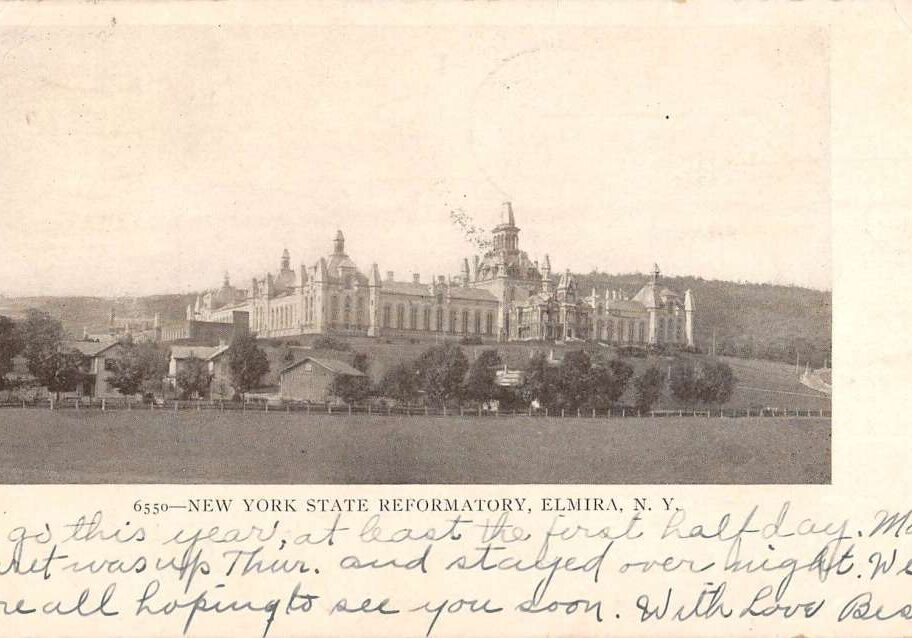 6550—NEW YORK STATE REFORMATORY, ELMIRA, N. Y.
go this year, at least the first half day. Ma
ret was up Thur. and stayed over night. We
re all hoping to see you soon. With Love Bes